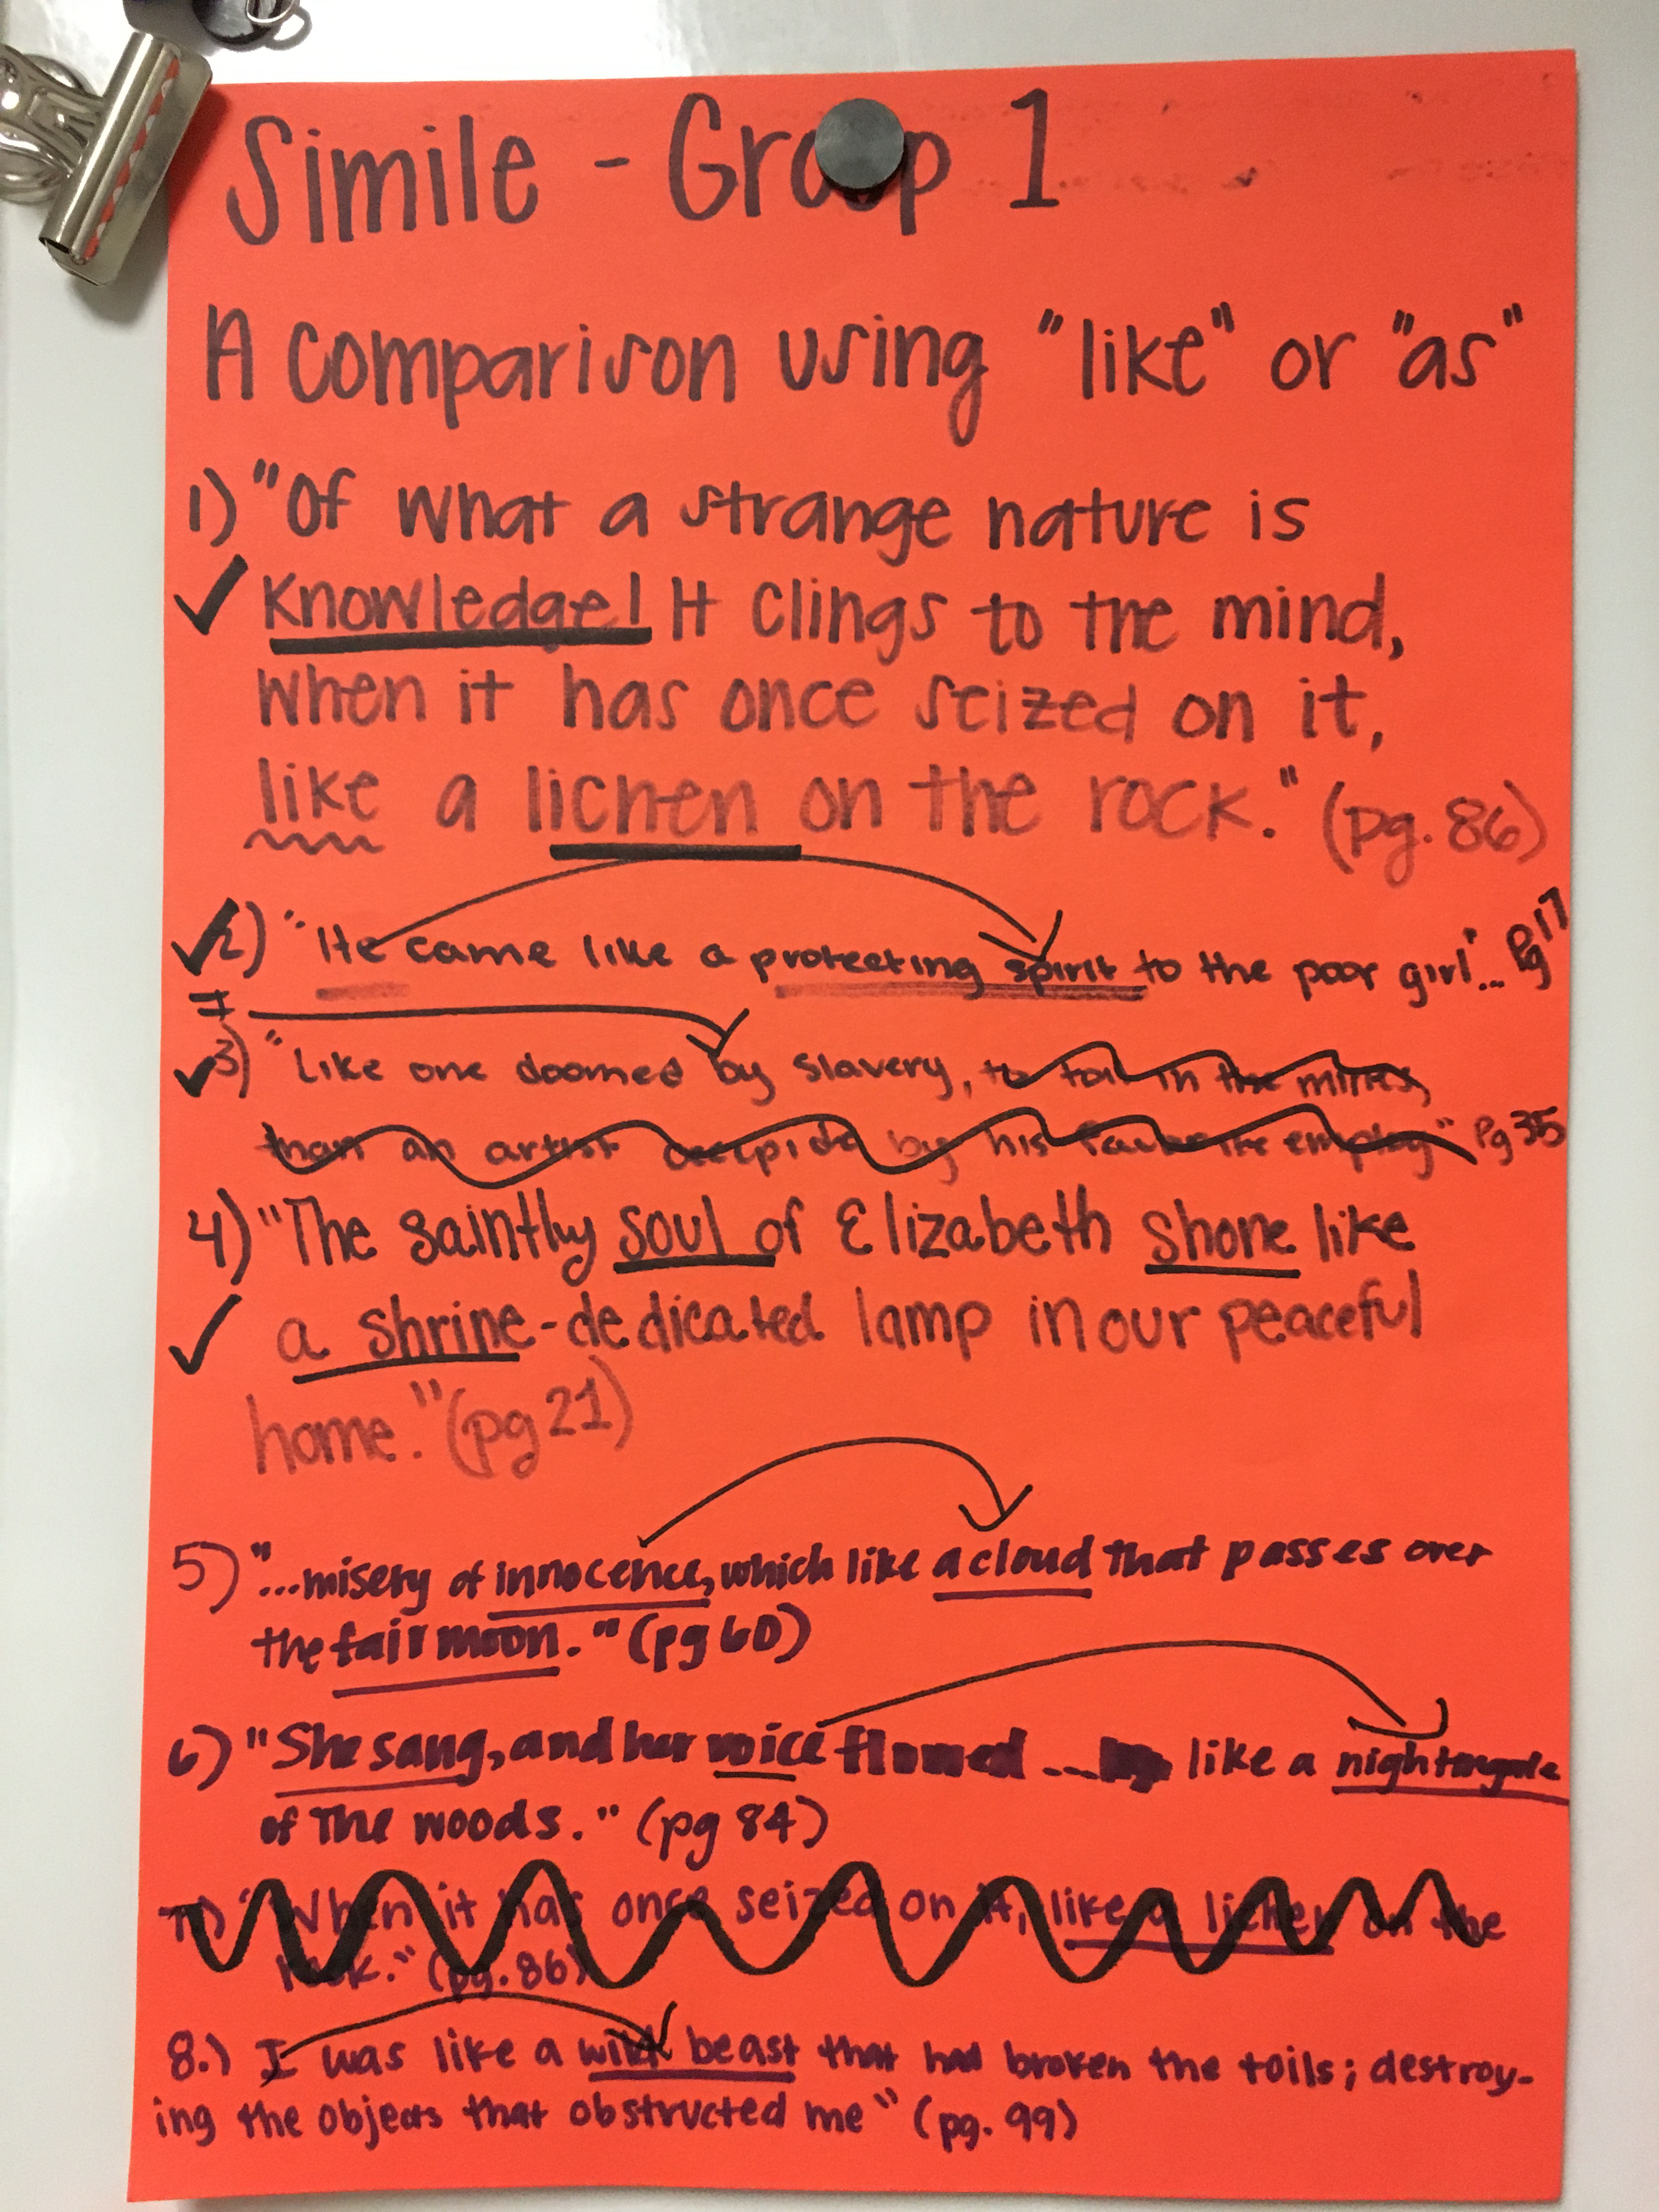 Simile - Group 1
A comparison using "like" or "as"
1) "Of what a strange nature is
knowledge! It clings to the mind,
when it has once seized on it,
like a lichen on the rock." (pg. 86)
2) "He came like a protecting spirit to the poor girl"... Pg 17
I
3) "Like one doomed by slavery, to toil in the mines,
than an artist by his employ" Pg 35
4) "The saintly soul of Elizabeth shone like
a shrine-dedicated lamp in our peaceful
home." (pg 21)
5) "...misery of innocence, which like a cloud that passes over
the fair moon." (pg 60)
6) "She sang, and her voice flowed ... like a nightingale
of The woods." (pg 84)
7.) "When it has once seized on it, like a lichen on the
rock." (pg. 86)
8.) I was like a wild beast that had broken the toils; destroy-
ing the objects that obstructed me" (pg. 99)